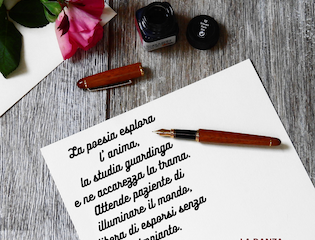 La poesia esplora
l'anima,
la studia guardinga
e ne accarezza la trama.
Attende paziente di
illuminare il mondo,
libera di esporsi senza
LA DANZA